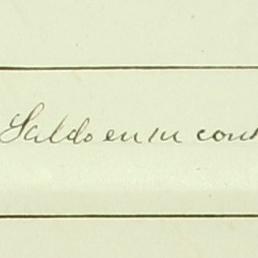 Saldo en su cont